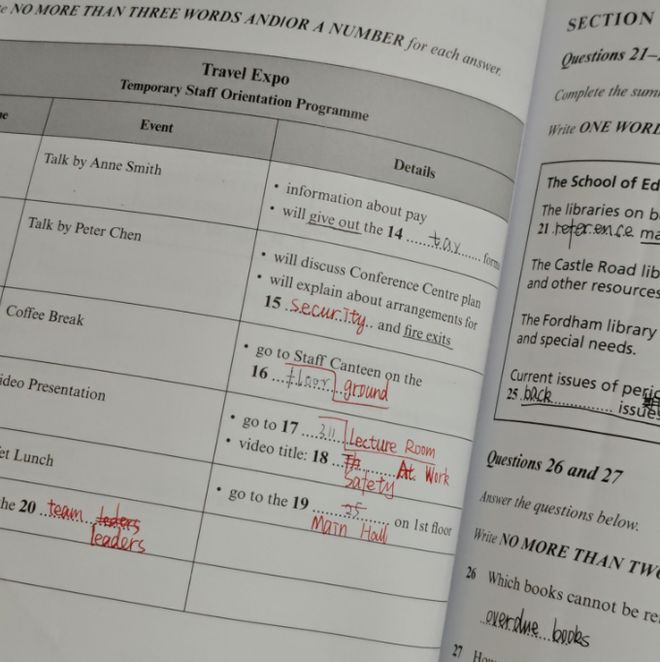 NO MORE THAN THREE WORDS ANDIOR A NUMBER for each answer.
Travel Expo
Temporary Staff Orientation Programme
Event
Details
Talk by Anne Smith
• information about pay
• will give out the 14 ...tax... forms
Talk by Peter Chen
• will discuss Conference Centre plan
• will explain about arrangements for
15 security.. and fire exits
Coffee Break
• go to Staff Canteen on the
16 ...floor ground
Video Presentation
• go to 17 ...311 Lecture Room
• video title: 18 ... At Work
Safety
Lunch
• go to the 19 ............ on 1st floor
Main Hall
the 20 ..team leaders
leaders
SECTION
Questions 21–
Complete the
Write ONE WORD
The School of Ed
The libraries on
21 .reference
The Castle Road
and other resources
The Fordham library
and special needs.
Current issues of
25 .back............ issues
Questions 26 and 27
Answer the questions below.
Write NO MORE THAN TWO
26 Which books cannot be
overdue books
27